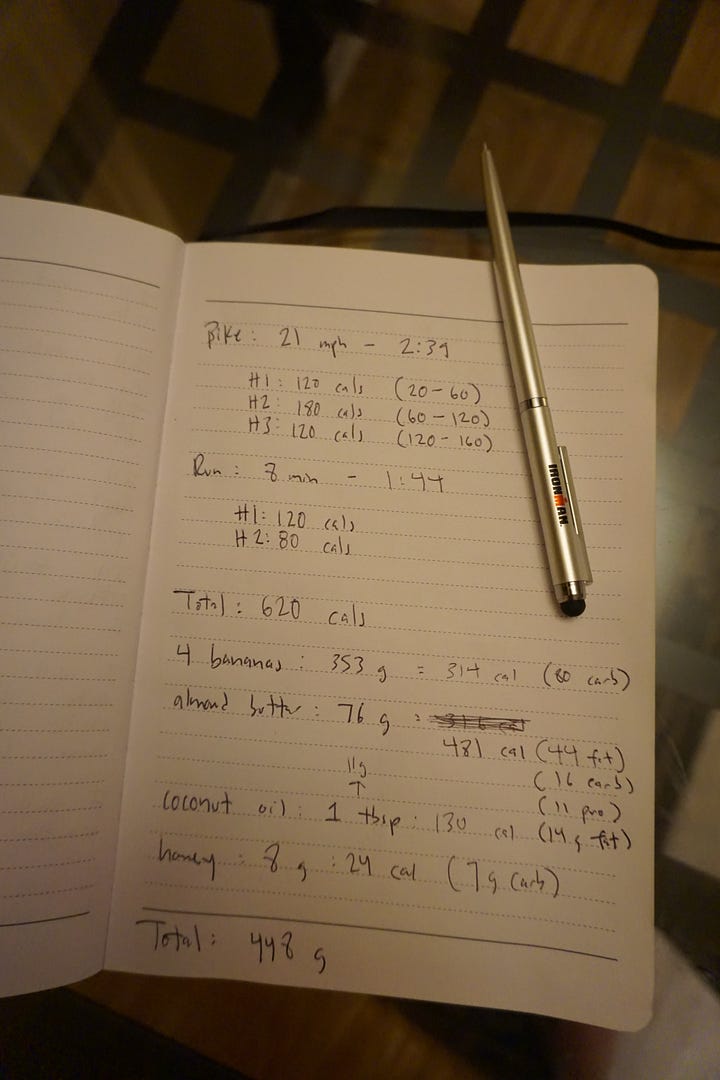 Bike: 21 mph - 2:39
H1: 120 cals (20-60)
H2: 180 cals (60-120)
H3: 120 cals (120-160)
Run: 8 min - 1:44
H1: 120 cals
H2: 80 cals
Total: 620 cals
4 bananas: 353 g = 314 cal (80 carb)
almond butter: 76 g =
481 cal (44 fat)
(16 carb)
11g
(11 pro)
↑
coconut oil: 1 tbsp: 130 cal (14 g fat)
honey: 8 g: 24 cal (7 g carb)
Total: 448 g
IRONMAN